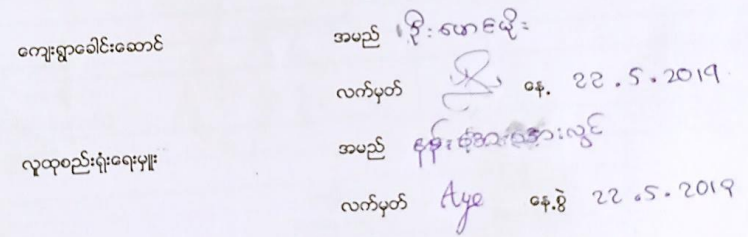 ကျေးရွာခေါင်းဆောင် အမည် ဦး
လက်မှတ် နေ့. 22.5.2019.
လူထုစည်းရုံးရေးမှူး အမည် နန်း
လက်မှတ် Aye နေ့.စွဲ 22.5.2019